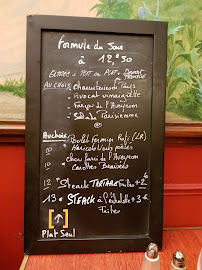 Formule du Jour
à 12,€50
Entrée + Plat ou Plat + Dessert
Au choix
Avocat vinaigrette
Farçou de l'Aveyron
Salade Parisienne
Au choix
Poulet Fermier Roti (LR)
Haricots verts poêlés
Chou farci de l'Aveyron
Carottes Braisées
12 € Steack TARTARE Frites + 2€
13 € STEACK à l'échalote + 3€
Frites
Plat Seul